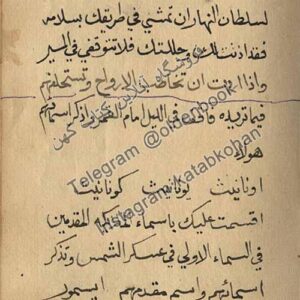 لسلطان النهار ان تمشي في طريقك بسلامه
فقد اذنت لك وحللتك فلا تتوقفي في السير
واذا اردت ان تخاطب الارواح وتستخدمهم
فيما تريده فاقف في الليل امام القمر واذكر اسمائهم
هولاء
اونانيث يونانيث كونانيث
اقسمت عليك باسماء الملائكه المقدمين
في السماء الاولي في عسكر الشمس وتذكر
اسمائهم واسم مقدمهم ايسمور
فروشگاه آنلاین کتب کهن
Telegram @oldenbook
Instagram:katabkohan